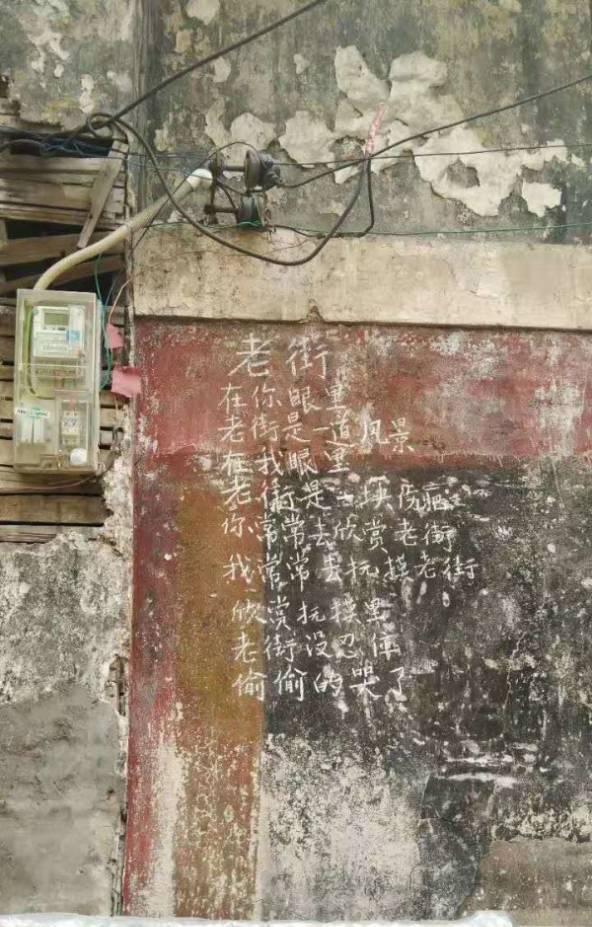 老街
在你眼里
老街是一道风景
在我眼里
老街是一块伤疤
你常常去欣赏老街
我常常去抚摸老街
欣赏抚摸里
老街没忍住
偷偷的哭了